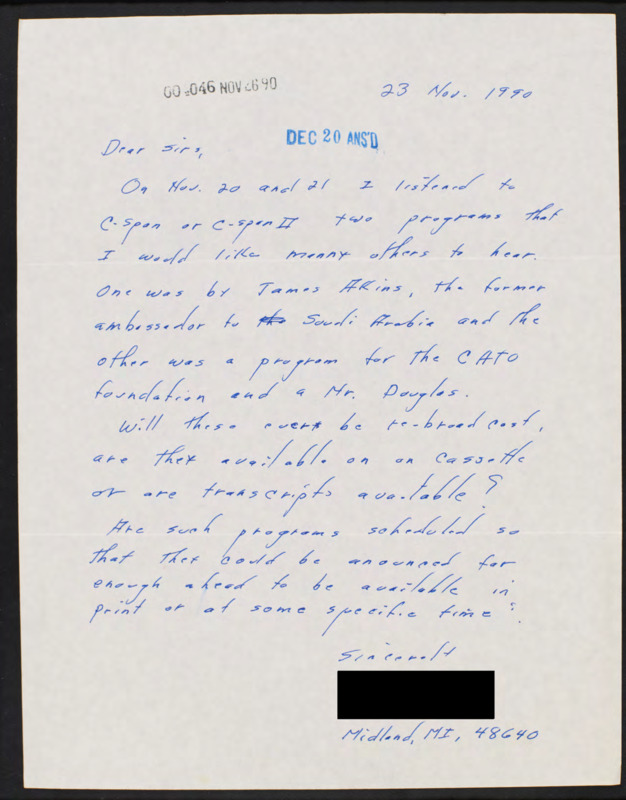 00046 NOV 26 90
23 Nov. 1990
DEC 20 ANS'D
Dear Sirs,
On Nov. 20 and 21 I listened to
C-span or C-span II two programs that
I would like manny others to hear.
One was by James Akins, the former
ambassador to the Saudi Arabia and the
other was a program for the CATO
foundation and a Mr. Douglas.
Will these ever be re-broadcast,
are they available on an cassette
or are transcripts available?
Are such programs scheduled so
that they could be anounced far
enough ahead to be available in
print or at some specific time?
Sincerely
Midland, MI, 48640